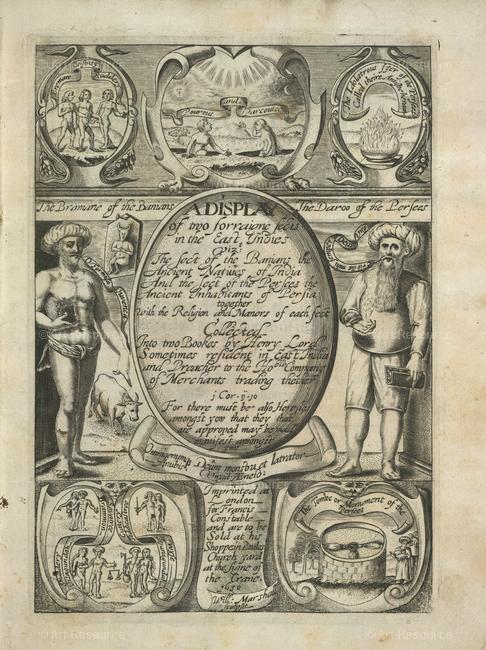 Bremaw
Rudde
Pourous and Parcoutee
The Idolatrous Fier of the Persees
The Bramane of the Banians
The Daroo of the Persees
A DISPLAY
of two forraigne sects
in the East Indies
viz:
The sect of the Banians the
Ancient Natiues of India
And the sect of the Persees the
Ancient Inhabitants of Persia
together
with the Religion and Maners of each sect
Collected
Into two Bookes by Henry Lord
Sometimes resident in East India
and Preacher to the Hoble Company
of Merchants trading thether
1 Cor-ij-19
For there must be also Heresies
amongst you that they that
are approved may be made
manifest amongst
you
Deum monstra et latrator
Anubis
Virgil Æneid
The Tombe or Monument of the
Persees
Imprinted at
London
for Francis
Constable
and are to be
Sold at his
Shoppe in Paules
Church yard
at the signe of
the Crane
1630
Will: Marshall
sculpsit
© Art Resource
© Art Resource